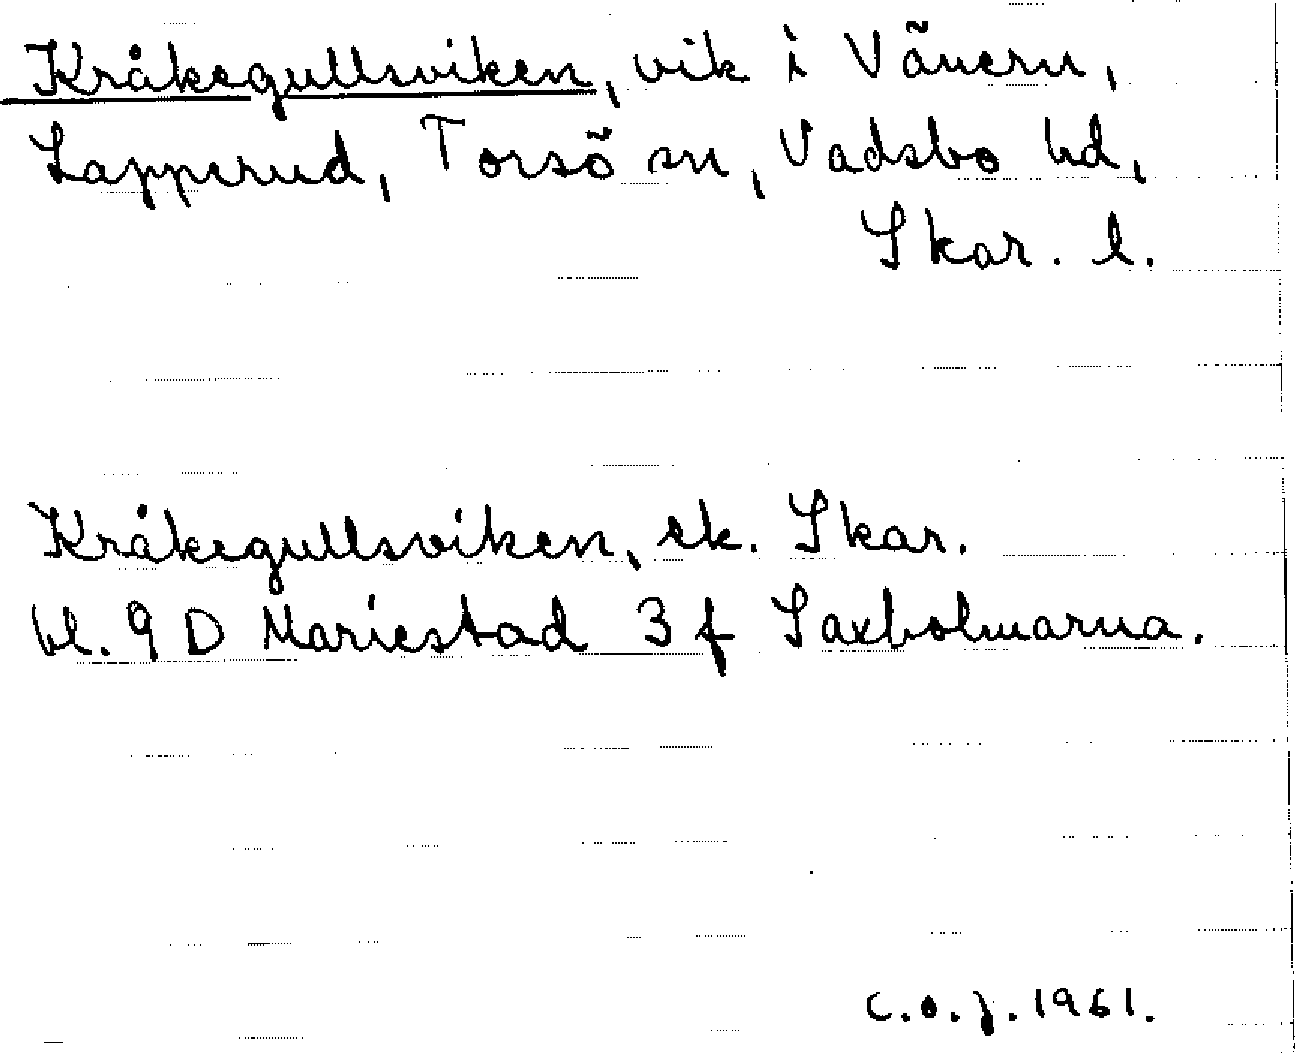 Kråkegullsviken, vik i Vänern,
Lapperud, Torsö sn, Vadsbo hd,
Skar. l.
Kråkegullsviken, ek. Skar.
bl. 9 D Mariestad 3 f Saxholmarna.
C.O.J. 1961.